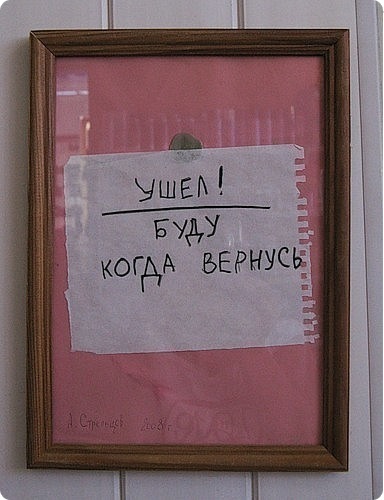 УШЕЛ!
БУДУ
КОГДА ВЕРНУСЬ
А. Стрельцов 2008г.